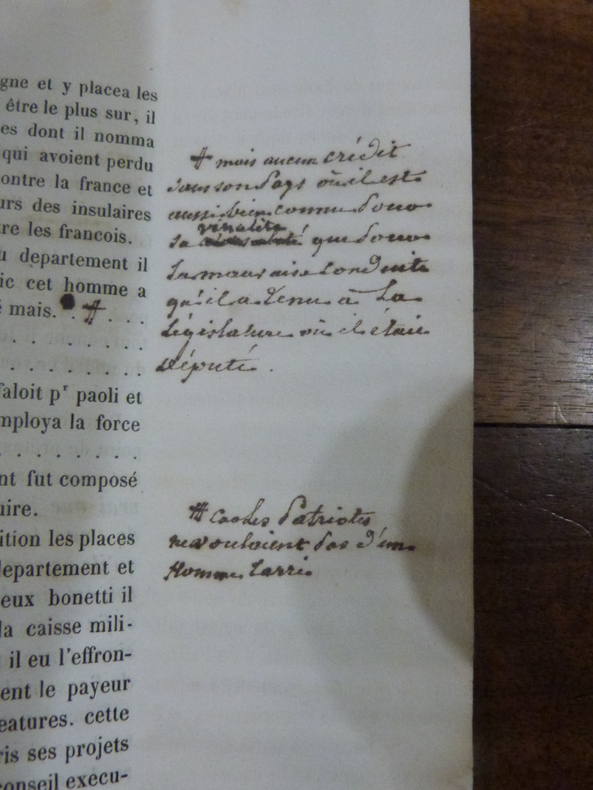 gne et y placea les
être le plus sur, il
es dont il nomma
qui avoient perdu
ontre la france et
urs des insulaires
tre les francois.
u departement il
ic cet homme a
é mais. . . .
. . . . . .
. . . . . .
faloit pʳ paoli et
mploya la force
. . . . . .
nt fut composé
uire.
ition les places
departement et
eux bonetti il
la caisse mili-
il eu l'effron-
ent le payeur
eatures. cette
ris ses projets
conseil execu-
# mais aucun crédit
dans son Pays où il est
aussi bien connu Pour
venalité
sa que Pour
La mauvaise Conduite
qu'il a Tenu à La
Législature où il était
Député.
# Car les Patriotes
ne vouloient Pas d'un
Homme Tarré